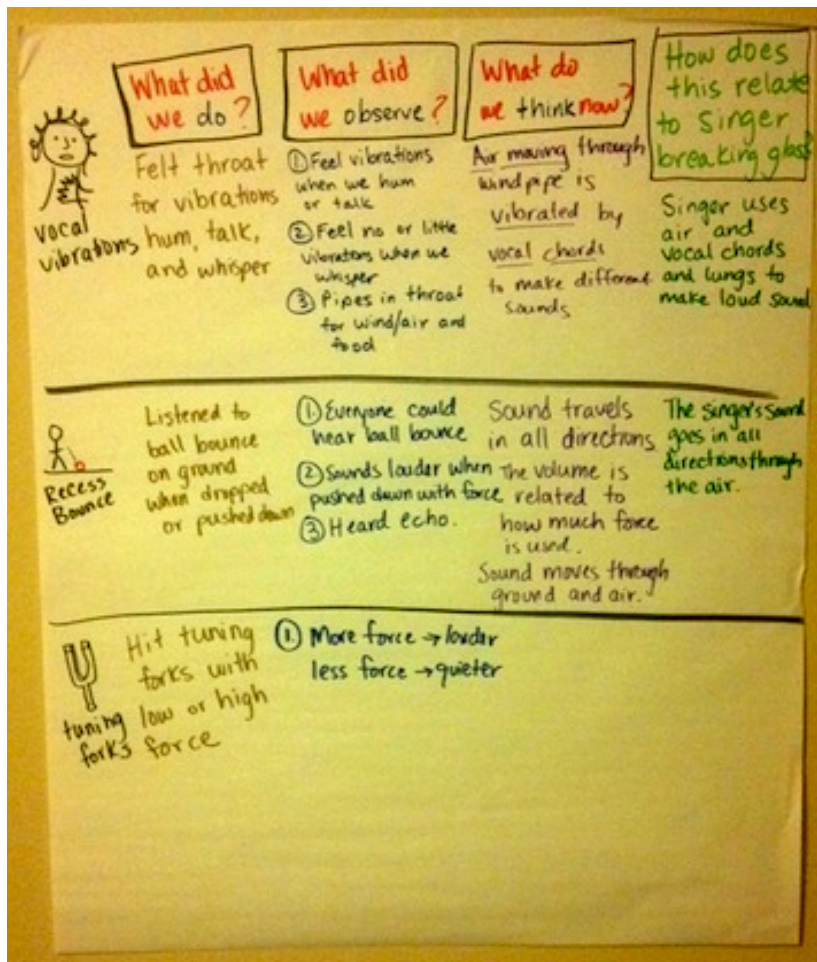 What did
we do?
What did
we observe?
What do
we think now?
How does
this relate
to Singer
breaking glass?
vocal
vibrations
Felt throat
for vibrations
hum, talk,
and whisper
① Feel vibrations
when we hum
or talk
② Feel no or little
vibrations when we
whisper
③ Pipes in throat
for wind/air and
food
Air moving through
windpipe is
vibrated by
vocal chords
to make different
sounds
Singer uses
air and
vocal chords
and lungs to
make loud sound
Recess
Bounce
Listened to
ball bounce
on ground
when dropped
or pushed down
① Everyone could
hear ball bounce
② Sounds louder when
pushed down with force
③ Heard echo.
Sound travels
in all directions
The volume is
related to
how much force
is used.
Sound moves through
ground and air.
The singer's sound
goes in all
directions through
the air.
tuning
forks
Hit tuning
forks with
low or high
force
① More force → louder
less force → quieter